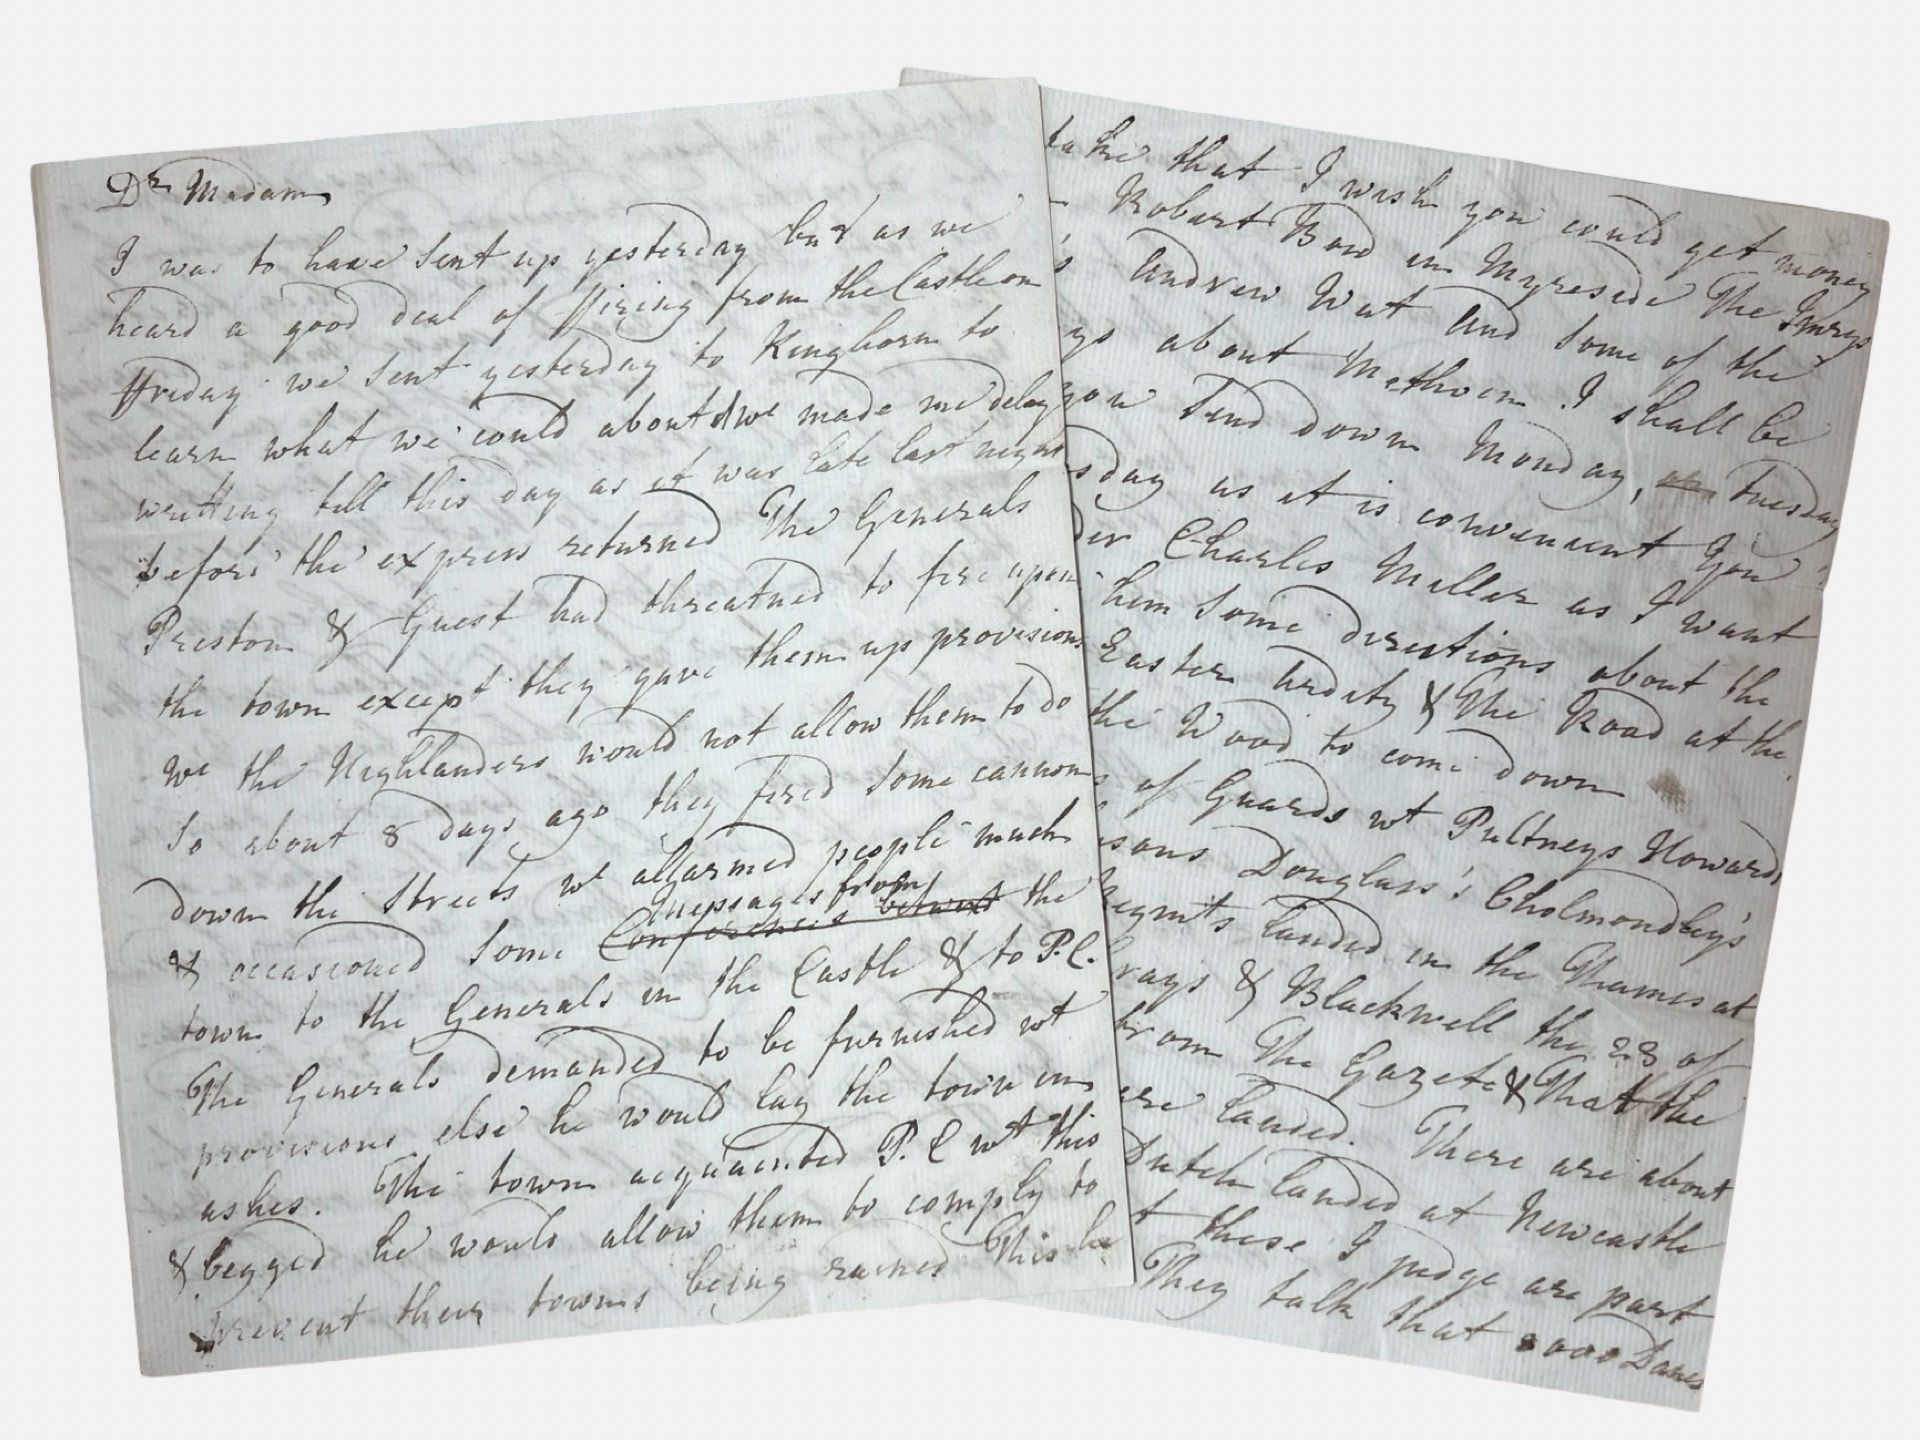 Dr Madam
I was to have sent up yesterday but as we
heard a good deal of ffiring from the Castle on
ffriday we sent yesterday to Kinghorn to
learn what we could about it wc made me delay
writting till this day as it was late last night
before the express returned The Generals
Preston & Guest had threatned to fire upon
the town except they gave them up provisions
wc the Highlanders would not allow them to do
So about 8 days ago they fired some cannon
down the streets wc allarmed people much
& occasioned some Conferences betwixt messages from the
town to the Generals in the Castle & to P.C.
The Generals demanded to be furnished wt
provisions else he would lay the town in
ashes. The town acquainted P. C wt this
& begged he would allow them to comply to
prevent their towns being ruined This he
take that I wish you could get money
Robert Bow in Myreside The Imrys
Andrew Wat and some of the
about Methven I shall be
you send down Monday, or Tuesday
as it is convenient You
Charles Miller as I want
him some directions about the
Easter Ardity & The Road at the
the Wood to come down
of Guards wt Pultneys Howards
Douglass's Cholmondleys
Regmts landed in the Thames at
& Blackwell the 23 of
from The Gazete & That the
are landed. There are about
Dutch landed at Newcastle
these I judge are part
They talk that 8000 Danes